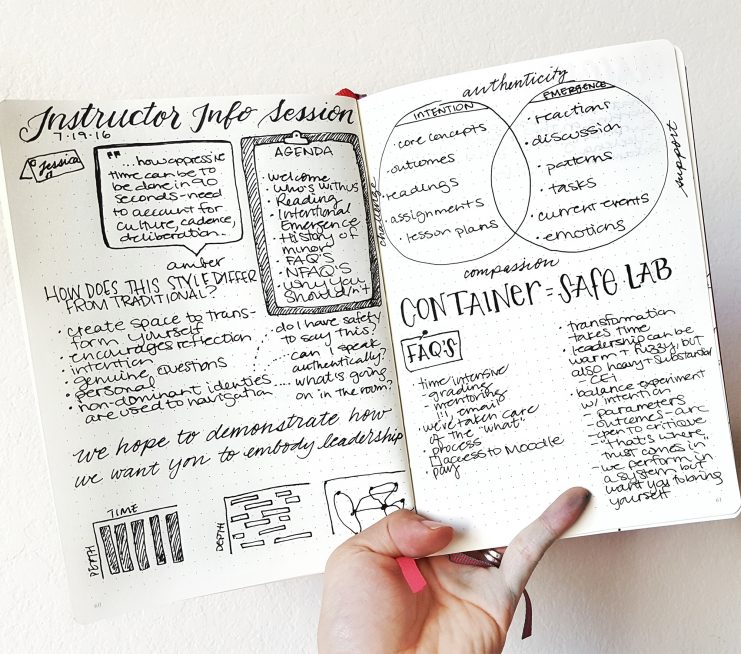 Instructor Info Session
7.19.16
Jessica
"...how oppressive
time can be to
be done in 90
seconds - need
to account for
culture, cadence,
deliberation.
amber
AGENDA
• welcome
• who's with us
• Reading
• Intentional
Emergence
• History of
minor
• FAQ'S
• NFAQ'S
• why you
shouldn't
HOW DOES THIS STYLE DIFFER
FROM TRADITIONAL?
• create space to trans-
form yourself
• encourages reflection
• intention
• genuine questions
• personal
• non-dominant identies
are used to navigation
do I have safety
to say this?
can I speak
authentically?
what's going
on in the room?
we hope to demonstrate how
we want you to embody leadership
TIME
DEPTH
DEPTH
60
authenticity
challenge
support
compassion
INTENTION
• core concepts
• outcomes
• readings
• assignments
• lesson plans
EMERGENCE
• reactions
• discussion
• patterns
• tasks
• current events
• emotions
CONTAINER = SAFE LAB
FAQ'S
• time intensive
- grading
- mentoring
!!! email
• we've taken care
of the "what"
• process
access to Moodle
• pay
• transformation
takes time
• leadership can be
warm + fuzzy, but
also heavy + substantial
- CEI
• balance experiment
w/ intention
- parameters
- outcomes - arc
- open to critique
- "that's where
trust comes in"
- we perform in
a system but
want you to bring
yourself
61